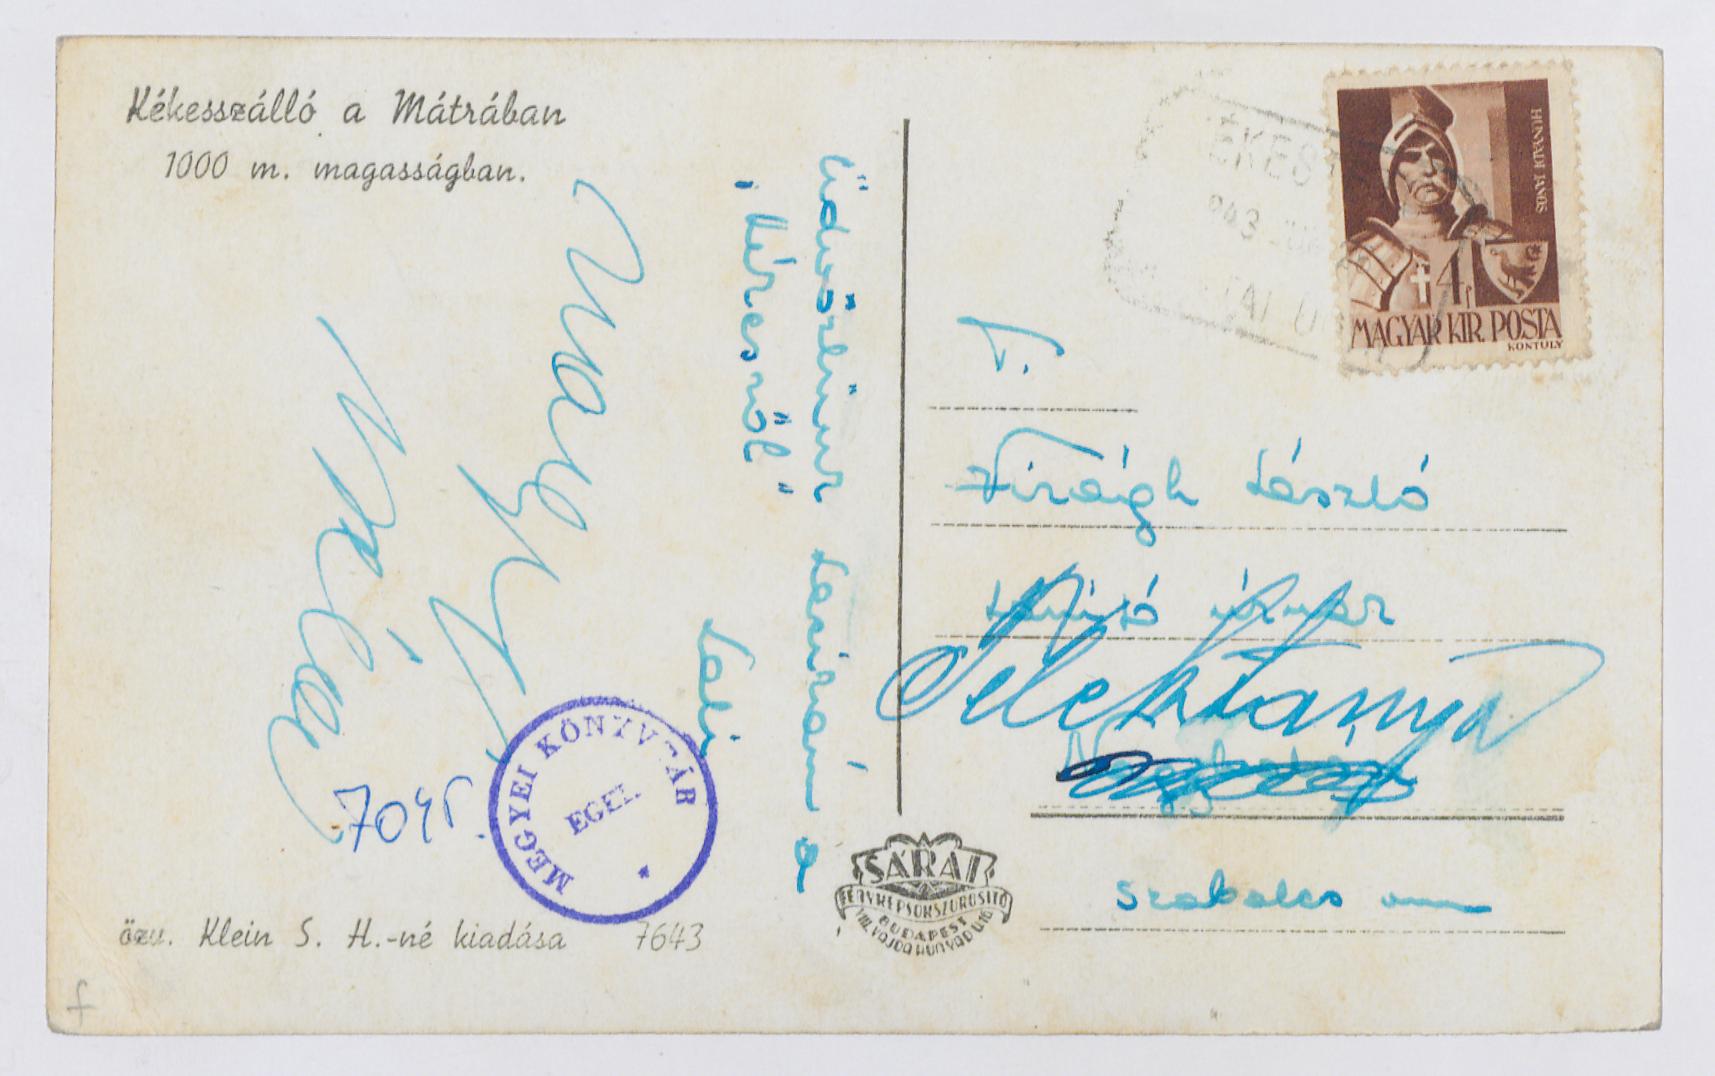 Kékesszálló a Mátrában
1000 m. magasságban.
Üdvözlünk Lacikám a
"Kékesről"
Lali
Nagy
Béla
7045
MEGYEI KÖNYVTÁR
EGER
özv. Klein S. H.-né kiadása 7643
f
SÁRAI
FÉNYKÉPSOKSZOROSITÓ
BUDAPEST
VIII. VAJDAHUNYAD U. 10
943
HUNYADI JÁNOS
4f
MAGYAR KIR. POSTA
KONTULY
T.
Virágh László
tanító úrnak
Telektanya
Szabolcs vm